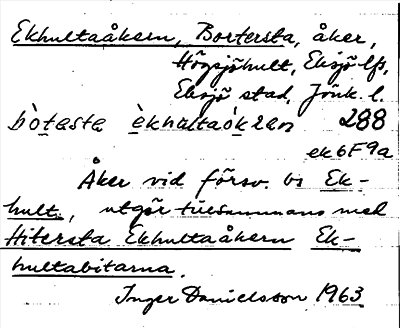 Ekhultaåkern, Bortersta, åker,
Högsjöhult, Eksjö lfs,
Eksjö stad, Jönk. l.
bòtasta èkhultaòkzan 288
ek 6F9a
Åker vid försv. bs Ek-
hult, utgör tillsammans med
Hitersta Ekhultaåkern Ek-
hultabitarna.
Inger Danielsson 1963